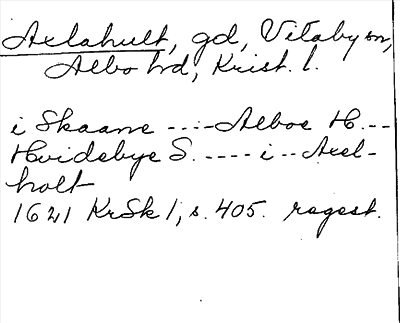 Axlahult, gd, Vitaby sn,
Albo hd, Krist. l.
i Skaane ---- Alboe H. --
Hvidebye S. ----- i -- Axel-
holt
1621 KrSk 1, s. 405. regest.